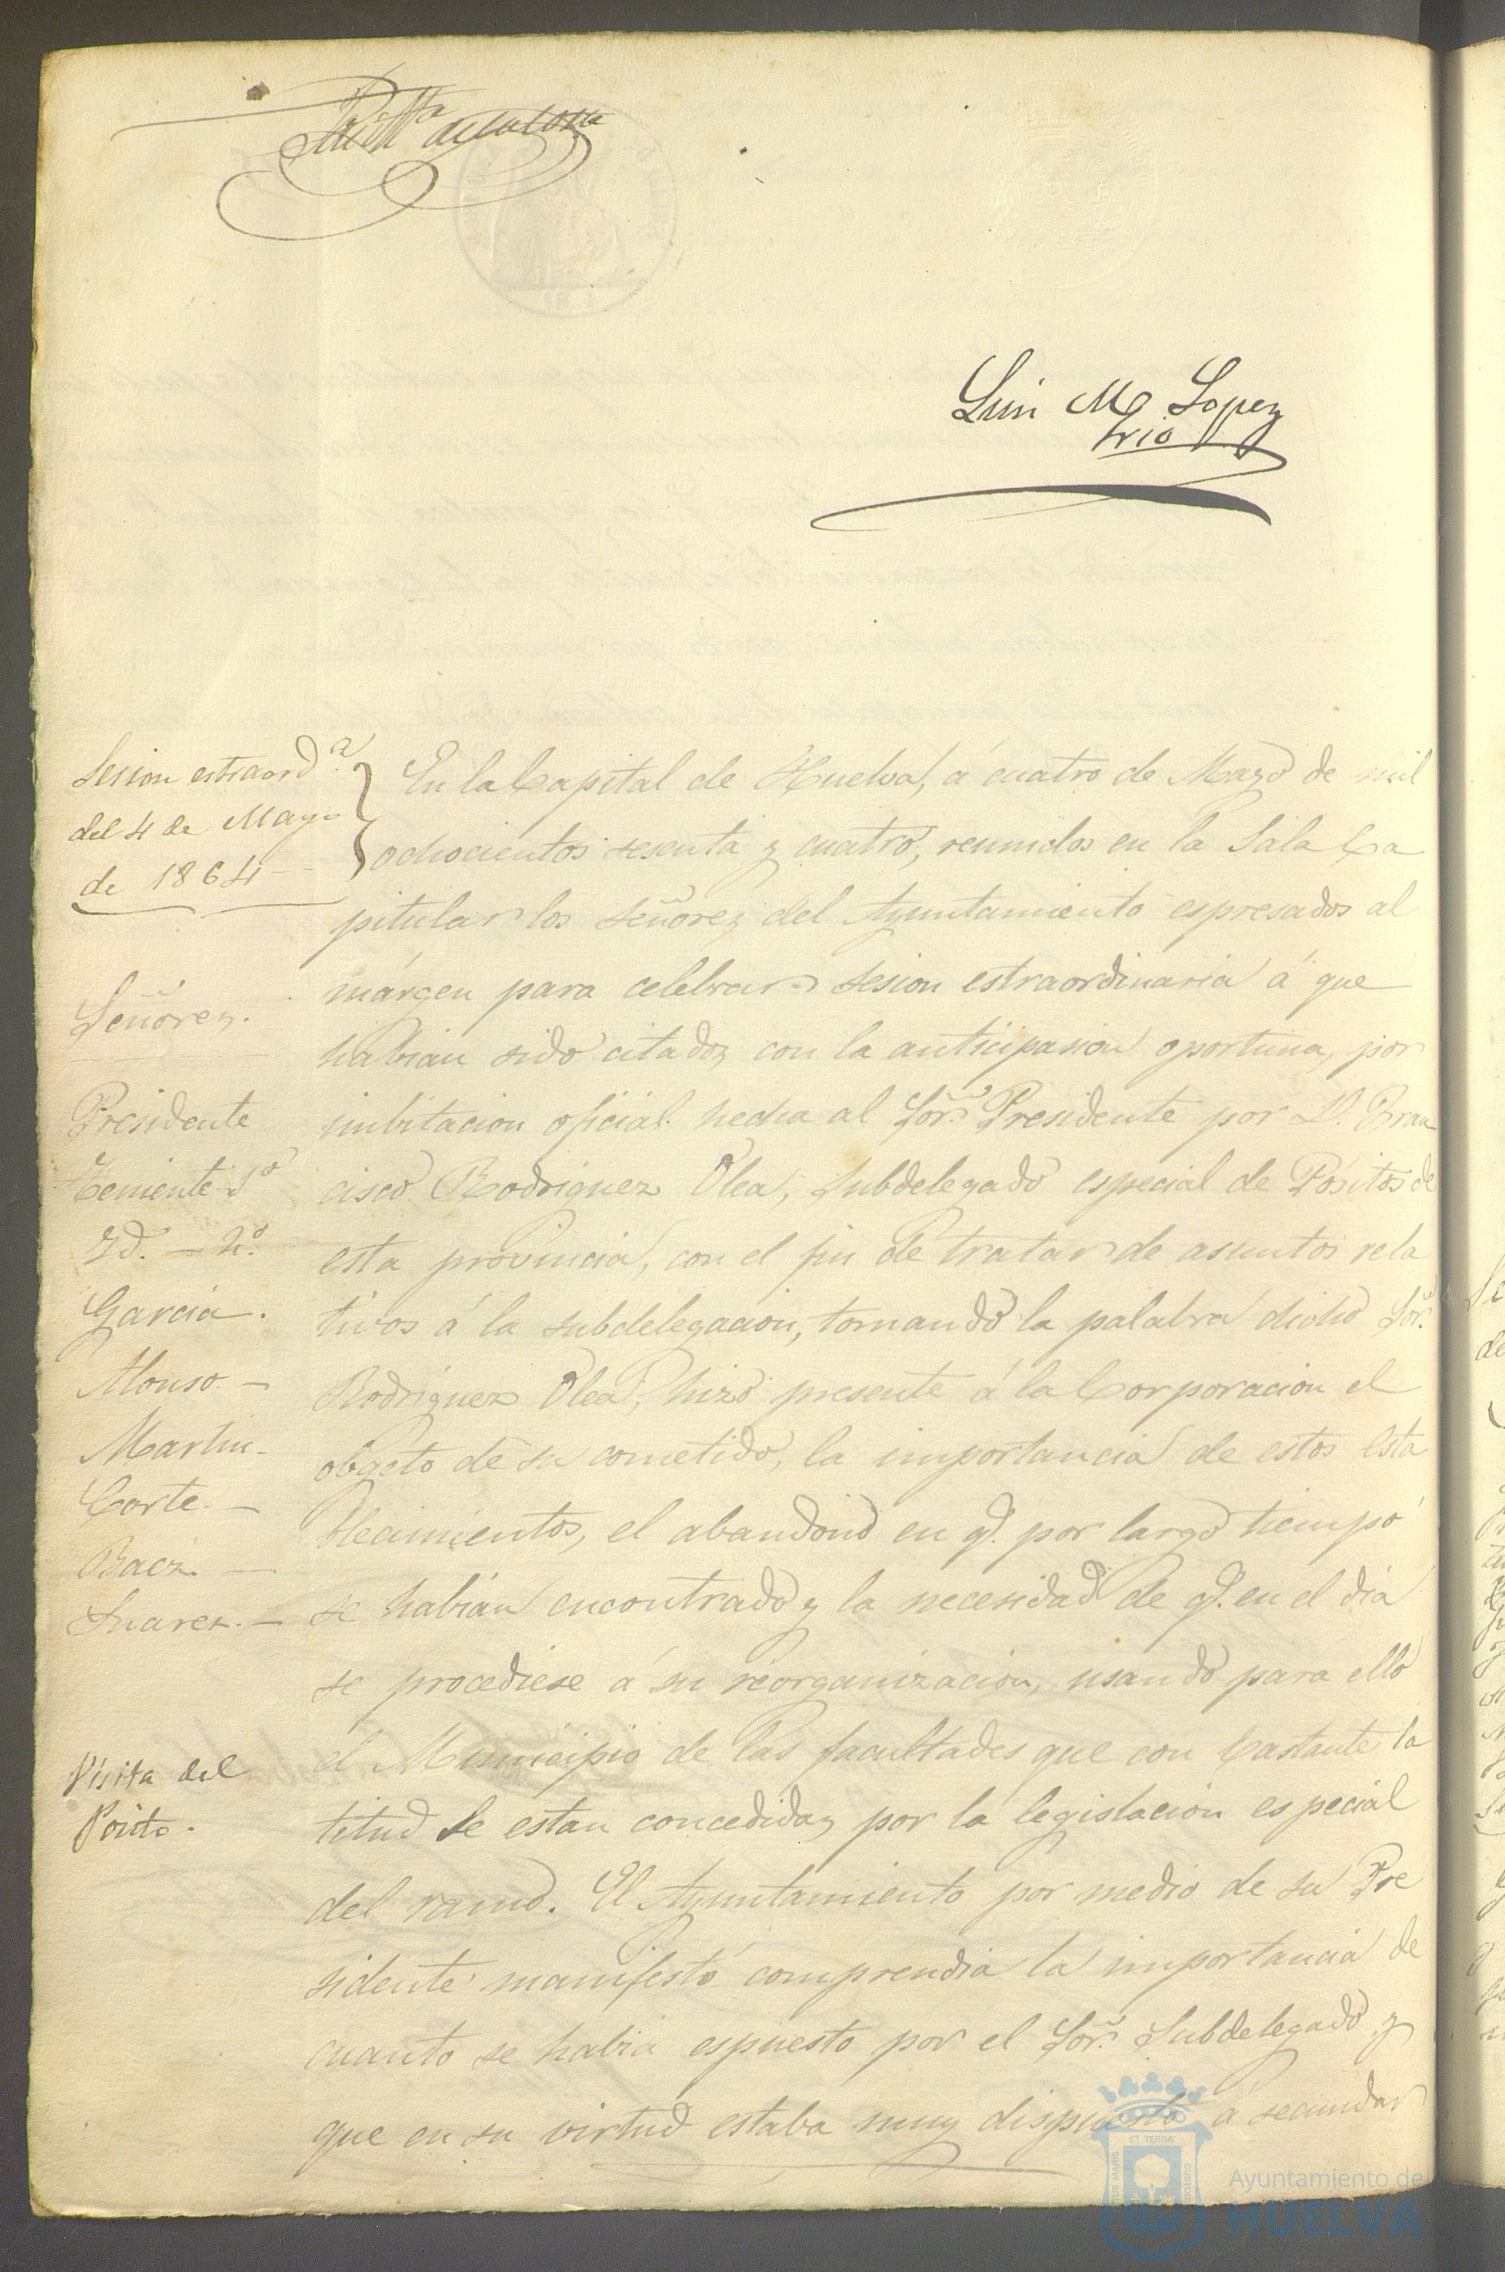 Luis M Lopez
Srio
Sesion estraord.ª
del 4 de Mayo
de 1864
Señores.
Presidente
Teniente 1º
Yd. - 2º.
Garcia.
Alonso -
Martin -
Corte. -
Baez. -
Suarez. -
Visita del
Pósito.
En la Capital de Huelva, á cuatro de Mayo de mil
ochocientos sesenta y cuatro, reunidos en la Sala Ca
pitular los Señores del Ayuntamiento espresados al
márgen para celebrar sesion estraordinaria á que
habian sido citados con la anticipasion oportuna, por
imbitacion oficial hecha al Sor. Presidente por D. Fran
cisco Rodriguez Olea, Subdelegado especial de Pósitos de
esta provincia, con el fin de tratar de asuntos rela
tivos á la subdelegacion, tomando la palabra dicho Sor.
Rodriguez Olea, hizo presente á la Corporacion el
obgeto de su cometido, la importancia de estos Esta
blecimientos, el abandono en q. por largo tiempo
se habian encontrado y la necesidad de q. en el dia
se procediese á su reorganizacion, usando para ello
el Municipio de las facultades que con bastante la
titud le estan concedidas por la legislacion especial
del ramo. El Ayuntamiento por medio de su Pre
sidente manifestó comprendia la importancia de
cuanto se habia espuesto por el Sor. Subdelegado y
que en su virtud estaba muy dispuesto á secundar
ET TERRÆ
Ayuntamiento de
HUELVA